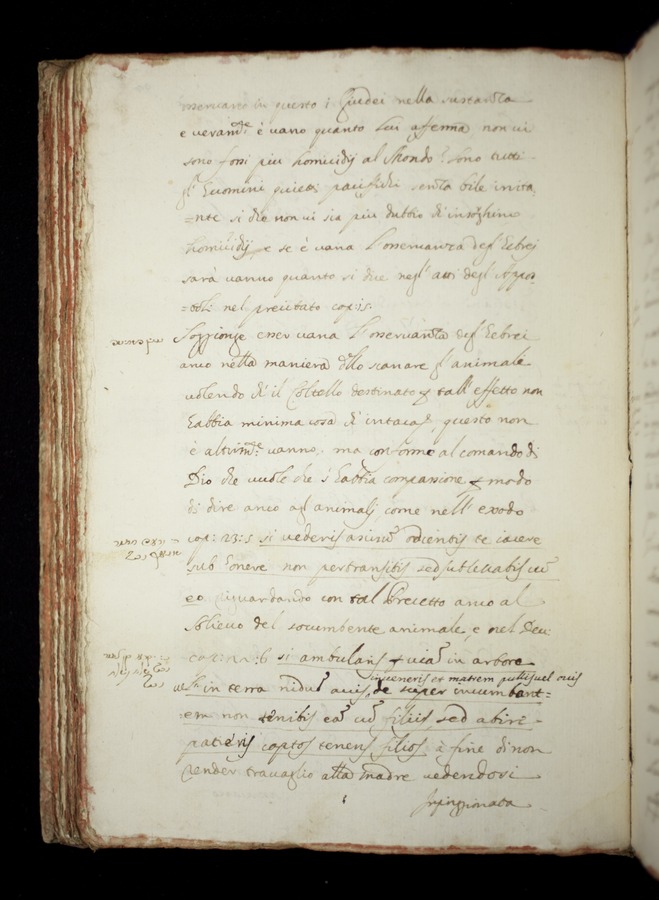 osservano in questo i Giudei nella sustanza
e veram.te è vano quanto lui afferma non vi
sono forsi piu homicidij al Mondo? sono tutti
gl' huomini quieti pacifichi senza bile irrita
=nte si che non vi sia piu dubbio di
homicidij e se è vana l'osservanza degl' Eebrei
sarà vanno quanto si dice negl' atti degl' Appos
=toli nel preicitato cap: 15.
Soggionge esser vana l'osservanza degl' Eebrei
anco nella maniera dello scanare gl' animale
volendo ch' il Coltello destinato p tall' effetto non
habbia minima cosa d' intacat, questo non
è altrim.te vanno, ma conforme al comando di
Dio che vuole che s' habbia compassione p modo
di dire anco agl' animalj come nell' exodo
cap: 23: 5 si videris asinum odientis te iacere
sub honere non pertransibis sed sublevabis cum
eo riguardando con tal Precetto anco al
Solievo del socumbente animale, e nel Deu:
cap: 22: 6 si ambulans p viam in arbore
inveneris et matrem pullis vel ovis
vel in terra nidum avis, de super incumbant=
:em non tenebis eam cum filiis, sed abire
patieris captos tenens filios à fine di non
render travaglio alla madre vedendosi